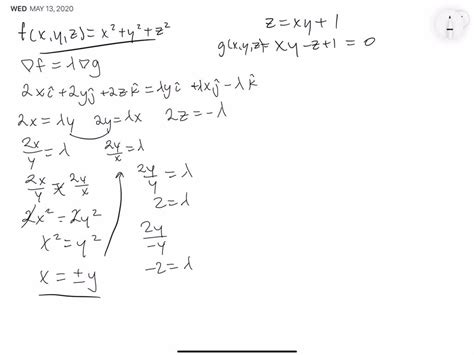 WED MAY 13, 2020
f(x,y,z)=x²+y²+z²
z=xy+1
g(x,y,z)=xy-z+1=0
∇f=λ∇g
2xî+2yĵ+2zk̂=λyî+λxĵ-λk̂
2x=λy 2y=λx 2z=-λ
2x/y=λ 2y/x=λ
2x/y=2y/x
2x²=2y²
x²=y²
x=±y
2y/y=λ
2=λ
2y/-y
-2=λ